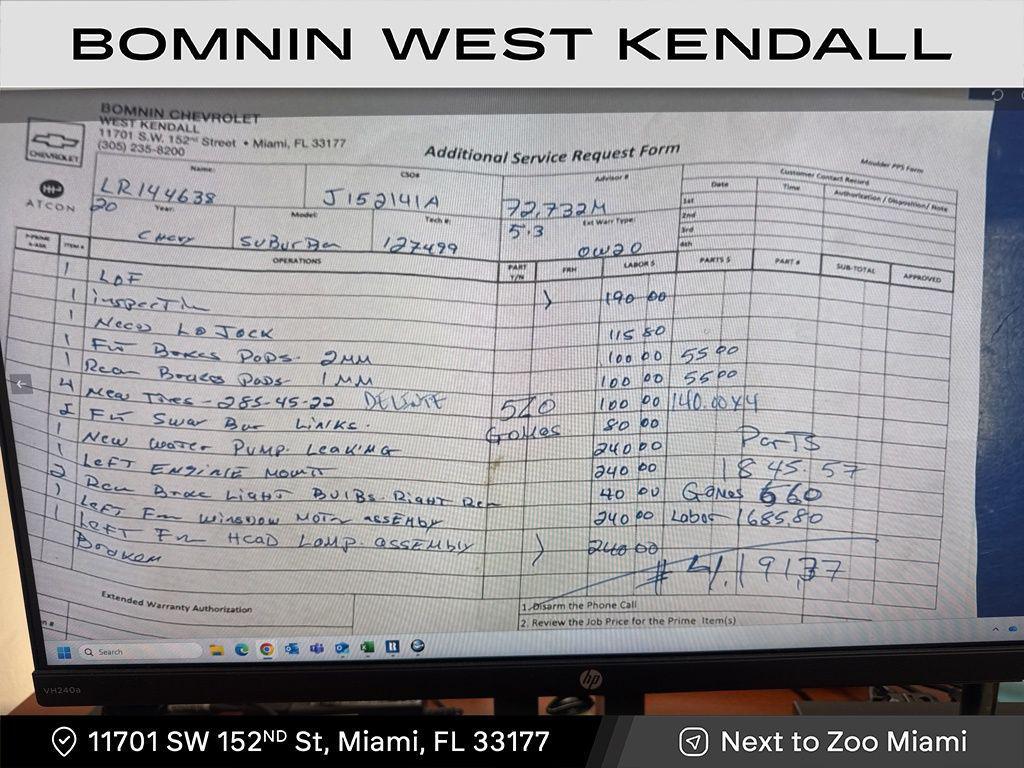 BOMNIN WEST KENDALL
BOMNIN CHEVROLET
WEST KENDALL
11701 S.W. 152nd Street • Miami, FL 33177
(305) 235-8200
CHEVROLET
ATCON
Additional Service Request Form
Moulder PPS Form
Name:
CSO#
Advisor #
Customer Contact Record
Date Time Authorization / Disposition / Note
1st
2nd
3rd
4th
LR144638 J152141A 72,732M
20 Year: Model: Tech #: 5.3 Ext Warr Type:
Chevy Suburban 127499 0W20
ITEM # OPERATIONS PART Y/N FRH LABOR $ PARTS $ PART # SUB-TOTAL APPROVED
1 LOF
1 inspection } 190 00
1 Need Lo Jack 115 80
1 Frt Brakes Pads. 2MM 100 00 55 00
1 Rear Brakes Pads 1MM 100 00 55 00
4 New Tires - 285-45-22 520 100 00 140.00x4
2 Frt Sway Bar Links. Gomas 80 00
1 New water Pump. Leaking 240 00 Parts
1 Left ENGINE Mount 240 00 1845.57
2 Rear Brake Light Bulbs. Right Rear 40 00 Gomas 560
1 Left Frt Window Motor assembly 240 00 Labor 1685.80
1 Left Frt Head Lamp. assembly } 240 00
Broken
# 4,191.37
Extended Warranty Authorization
1. Disarm the Phone Call
2. Review the Job Price for the Prime Item(s)
Search
VH240a
hp
11701 SW 152ND St, Miami, FL 33177
Next to Zoo Miami